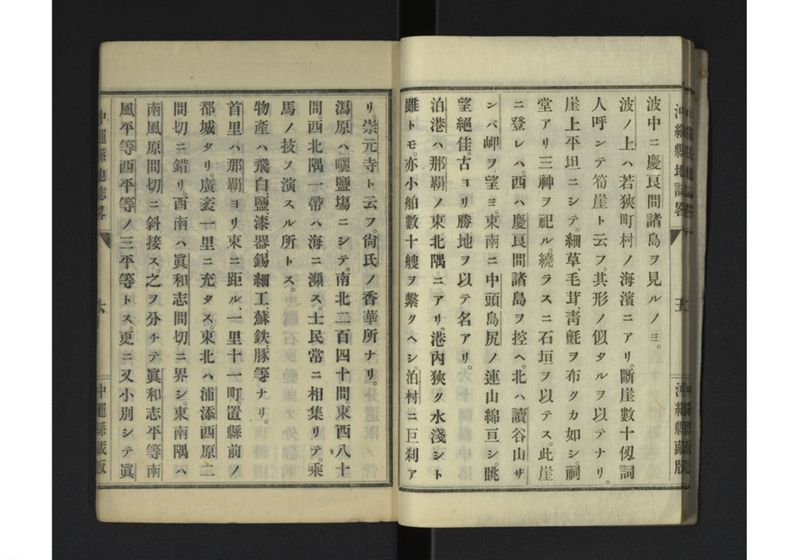 波中ニ慶良間諸島ヲ見ルノミ。
波ノ上ハ若狹町村ノ海濱ニアリ。斷崖數十仭詞
人呼ンテ筍崖ト云フ。其形ノ似タルヲ以テナリ。
崖上平坦ニシテ。細草毛茸靑氈ヲ布クカ如シ。祠
堂アリ三神ヲ祀ル繞ラスニ石垣ヲ以テス。此崖
ニ登レハ。西ハ慶良間諸島ヲ控ヘ。北ハ讀谷山ザ
ンパ岬ヲ望ミ。東南ニ中頭島尻ノ連山綿亘シ。眺
望絕佳。古ヨリ勝地ヲ以テ名アリ。
泊港ハ那覇ノ東北隅ニアリ。港內狹ク水淺シト
雖トモ亦小舶數十艘ヲ繫クヘシ泊村ニ巨刹ア
沖繩縣地誌畧
五
沖繩縣藏版
リ。崇元寺ト云フ。尙氏ノ香華所ナリ。
潟原ハ曬鹽場ニシテ。南北二百四十間東西八十
間西北隅一帶ハ海ニ瀕ス。士民常ニ相集リテ。乘
馬ノ技ヲ演スル所トス。
物產ハ飛白、鹽、漆器、錫細工、蘇鉄、豚等ナリ。
首里ハ那覇ヨリ東ニ距ル、一里十一町置縣前ノ
都城タリ。廣袤一里ニ充タス。東北ハ浦添西原二
間切ニ錯リ。西南ハ眞和志間切ニ界シ。東南隅ハ
南風原間切ニ斜接ス。之ヲ分チテ眞和志平等南
風平等西平等ノ三平等トス。更ニ又小別シテ眞
沖繩縣地誌畧
六
沖繩縣藏版